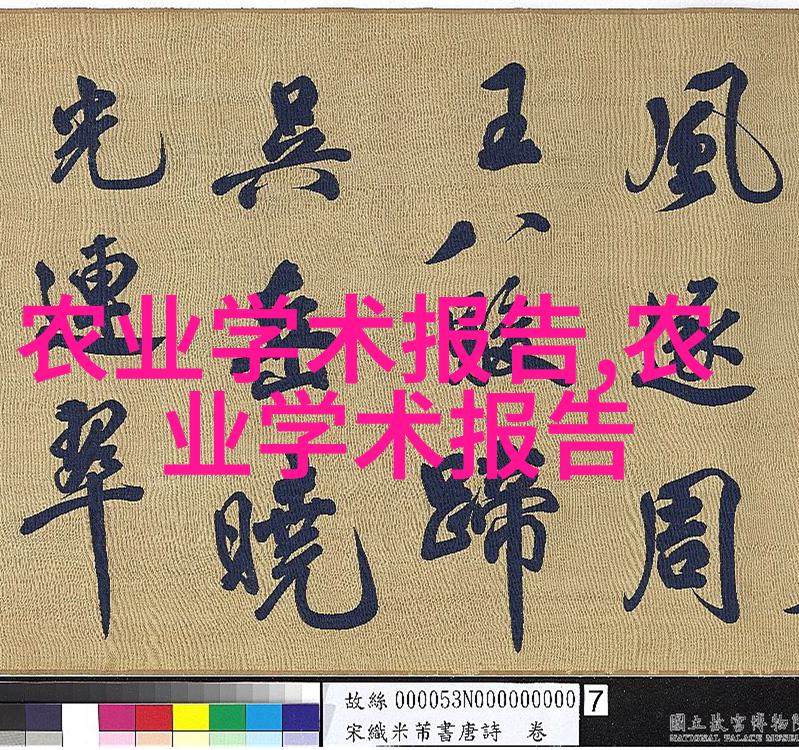 农业学术报告,农
业学术报告
風逐周
王八駿蹄
吳岳曉
光連翠
故絲 000053N000000000 7
宋織米芾書唐詩 卷
國立故宮博物院
NATIONAL PALACE MUSEUM